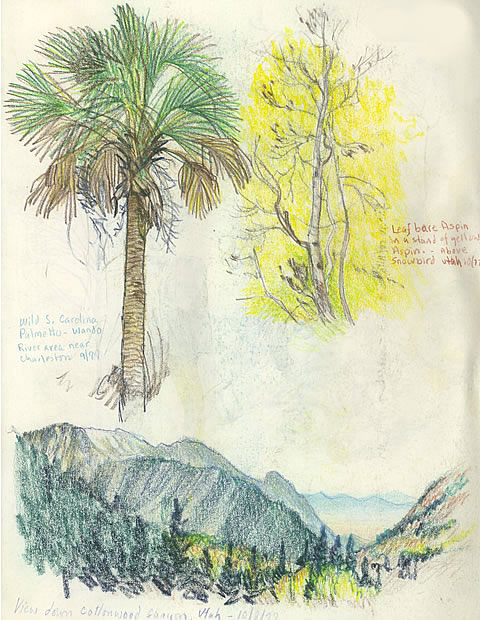 Wild S. Carolina
Palmetto - Wando
River area near
Charleston 9/99
Leaf bare Aspin
in a stand of yellow
Aspin - - above
Snowbird Utah 10/
View down Cottonwood Canyon, Utah - 10/8/99